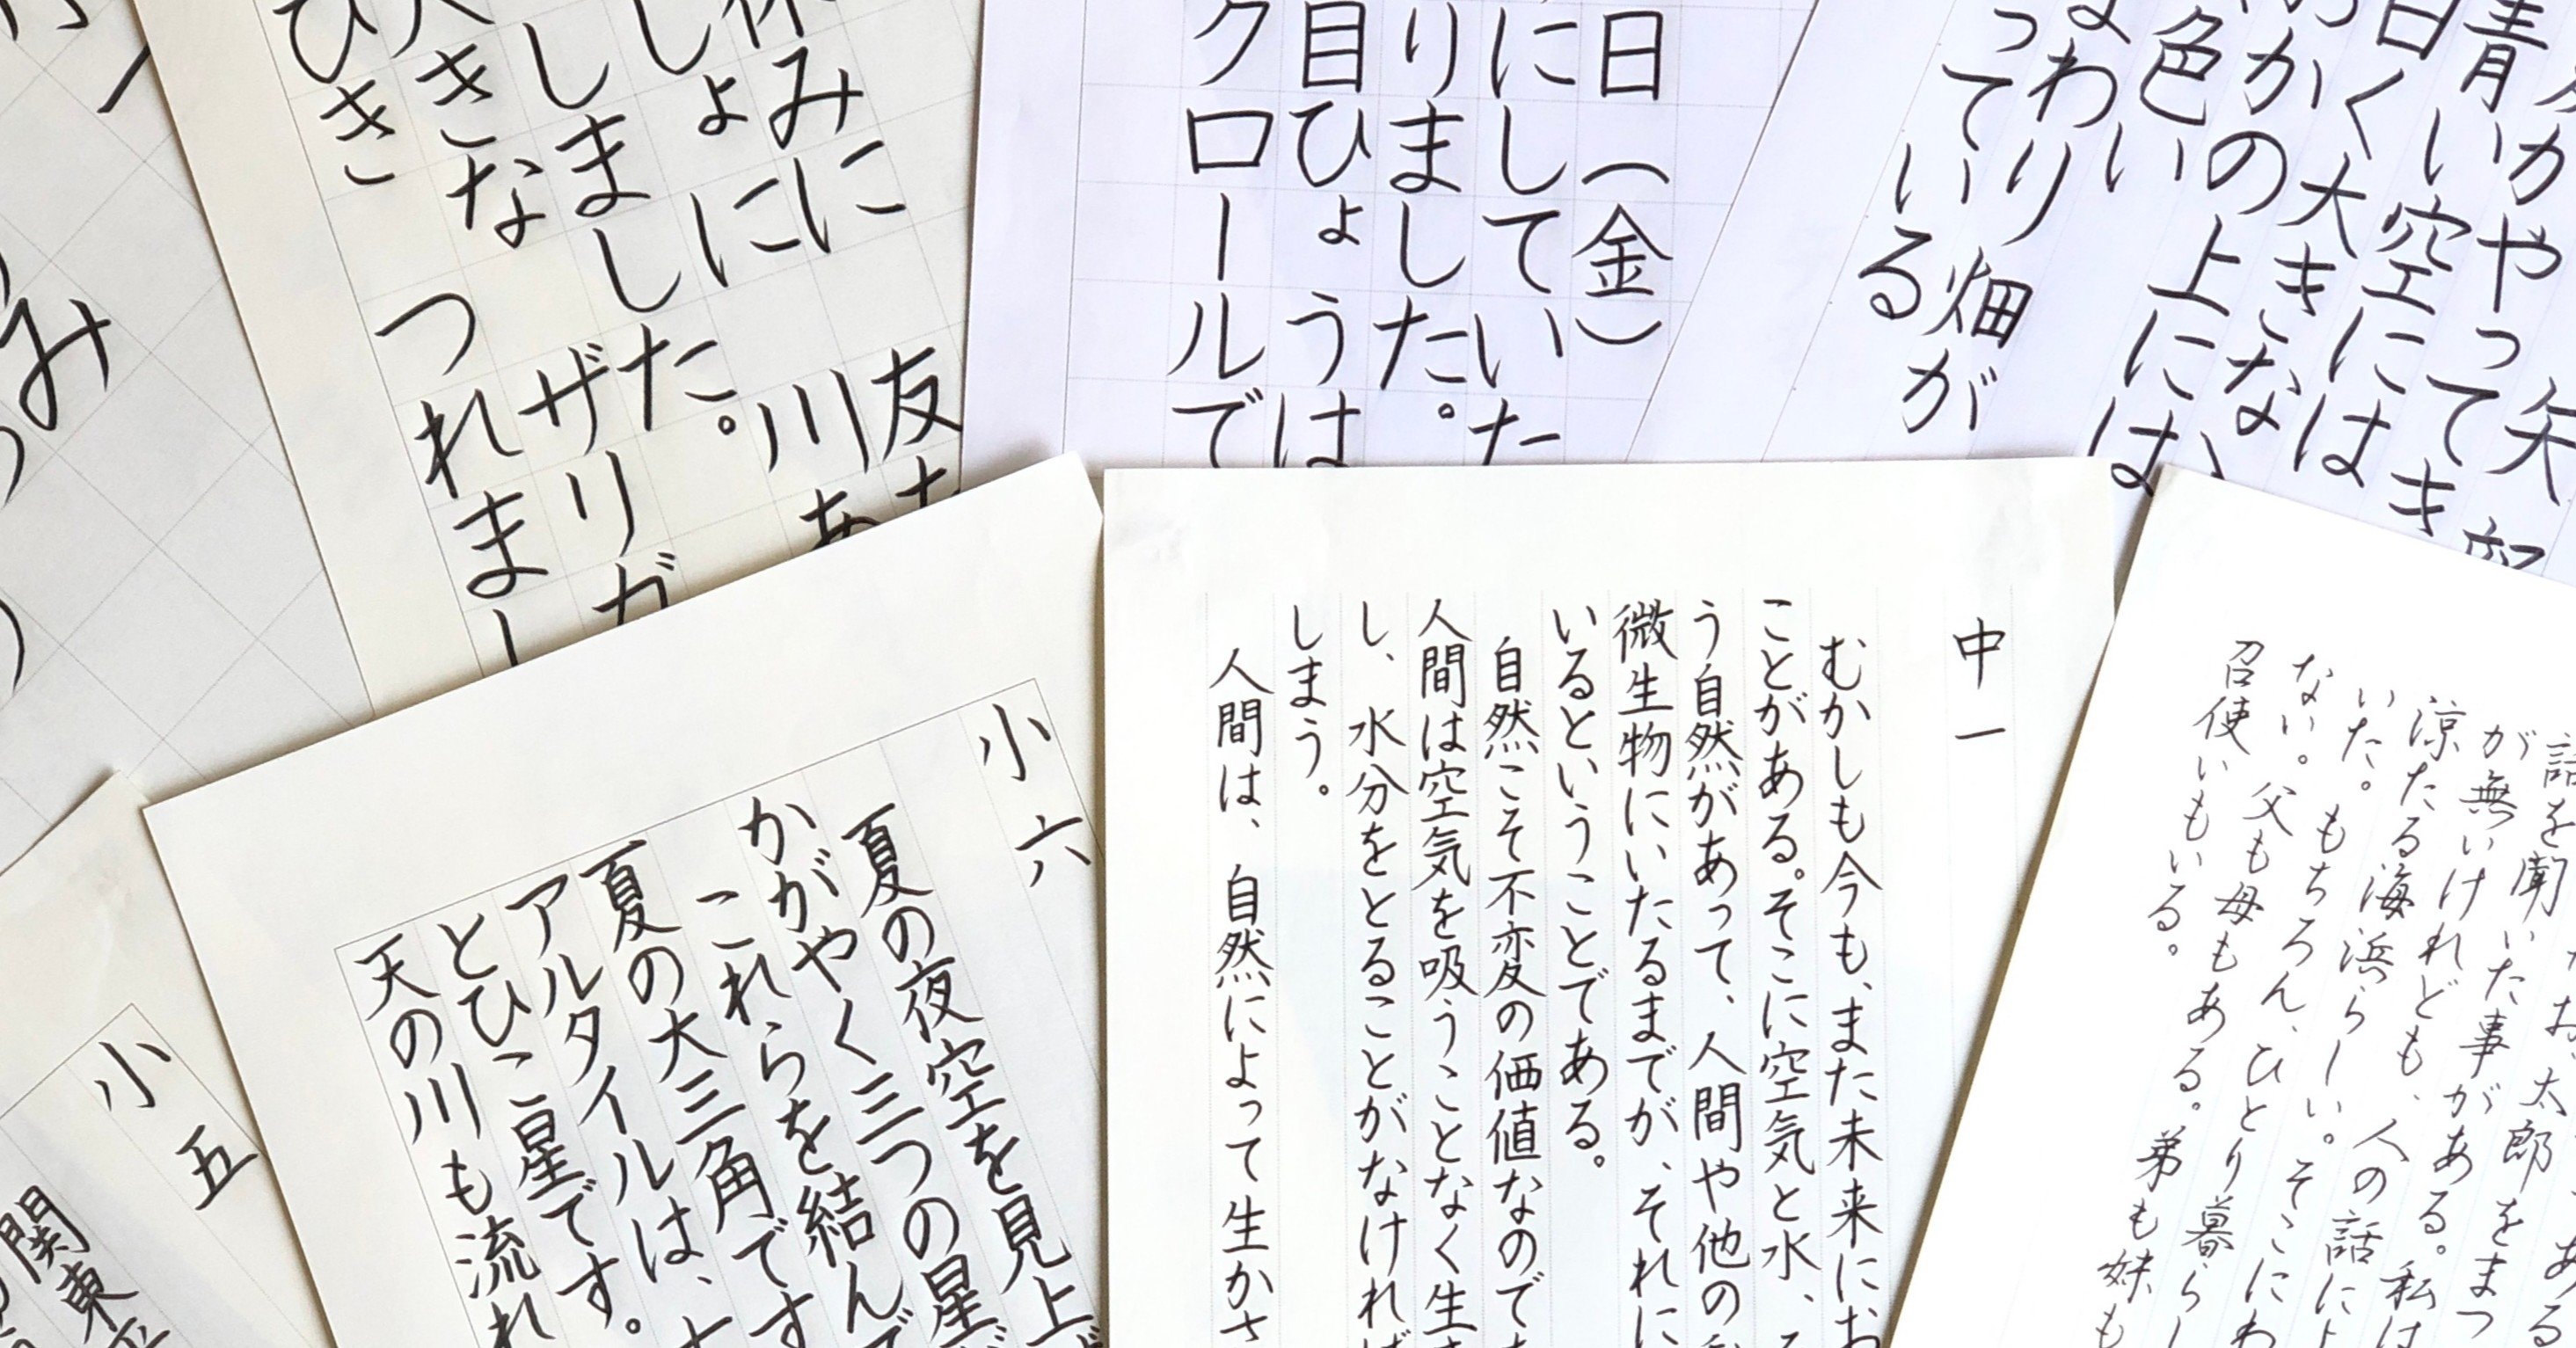 休みに 友
しょに 川あ
しました。
ザリガ
大きな
ひき つれまし
日(金)
にしていた
りました。
目ひょうは
クロールで
矢
青いかやってき
白くい空には
大きな
かの上には、
色い
なわり畑が
っている
小五
関東平
小六
夏の夜空を見上げ
かがやく三つの星が
これらを結んで
夏の大三角です
アルタイルは、
とひこ星です。
天の川も流れ
中一
むかしも今も、また未来にお
ことがある。そこに空気と水、
う自然があって、人間や他の
微生物にいたるまでが、それに
いるということである。
自然こそ不変の価値なのであ
人間は空気を吸うことなく生き
し、水分をとることがなければ
しまう。
人間は、自然によって生かさ
お太郎をまつ
話を聞いた事がある。私は
が無いけれども、人の話によ
涼たる海浜らしい。そこにわ
いた。もちろん、ひとり暮らし
ない。父も母もある。弟も妹も
召使いもいる。